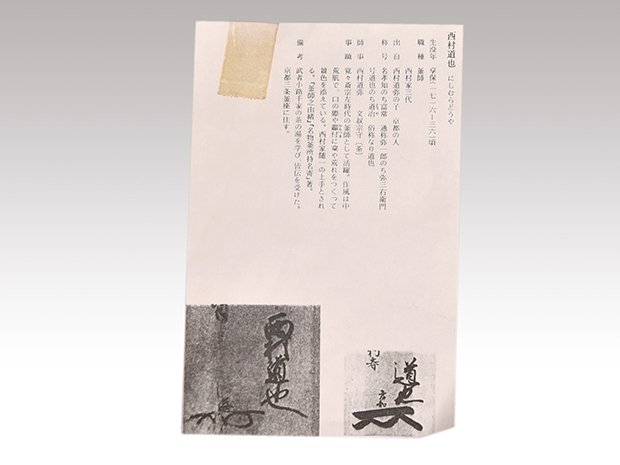 西村道也　にしむらどうや
生没年　享保（一七一六－三六）頃
職種　釜師
西村家三代
出自　西村道弥の子　京都の人
称号　名孝知のち富常　通称弥一郎のち弥三右衛門
号道也のち道冶　俗称なり道也
師事　西村道弥　文叔宗守〔茶〕
事蹟　覚々斎宗左時代の釜師として活躍。作風は中
荒肌で、口の廻や鐶付に稾や荒れをつくって
景色を添えている。西村家随一の上手とされ
る。『釜師之由緒』『名物釜所持名寄』著。
備考　武者小路千家の茶の湯を学び、皆伝を受けた。
京都三条釜座に住す。
西村道也
道也